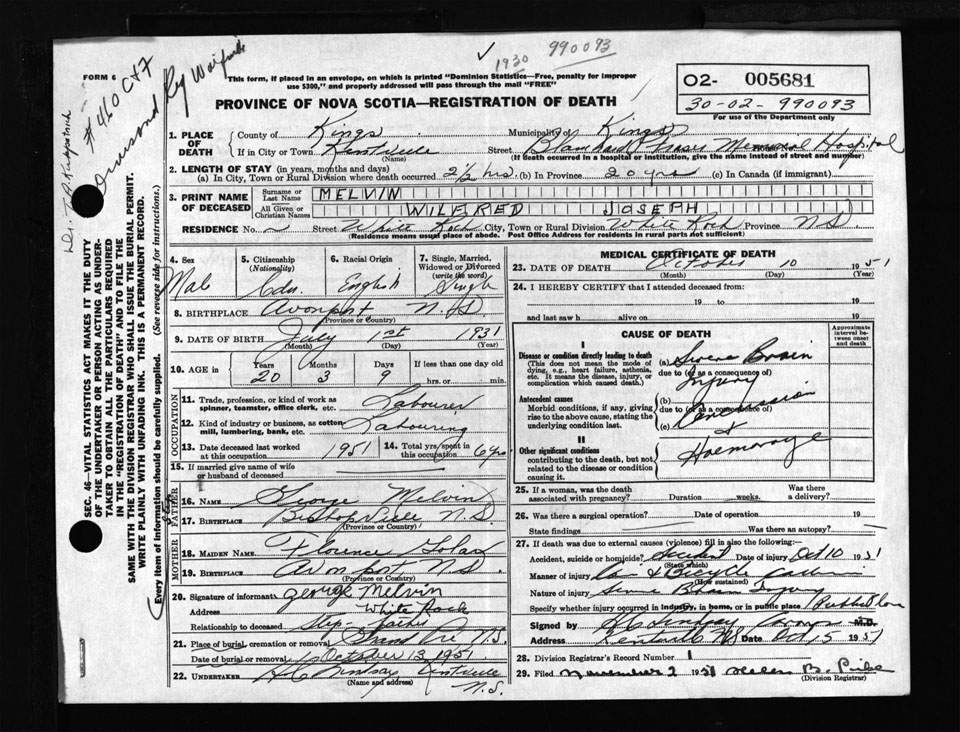 990093
1930
FORM 6
#460 C&7
Ormsond Reg
Dr. T.A. Kirkpatrick
This form, if placed in an envelope, on which is printed "Dominion Statistics—Free, penalty for improper
use $300," and properly addressed will pass through the mail "FREE"
PROVINCE OF NOVA SCOTIA—REGISTRATION OF DEATH
O2- 005681
30-02-990093
For use of the Department only
SEC. 46—VITAL STATISTICS ACT MAKES IT THE DUTY
OF THE UNDERTAKER OR PERSON ACTING AS UNDER-
TAKER TO OBTAIN ALL THE PARTICULARS REQUIRED
IN THE "REGISTRATION OF DEATH" AND TO FILE THE
SAME WITH THE DIVISION REGISTRAR WHO SHALL ISSUE THE BURIAL PERMIT.
WRITE PLAINLY WITH UNFADING INK. THIS IS A PERMANENT RECORD.
Every item of information should be carefully supplied. (See reverse side for instructions.)
1. PLACE OF DEATH County of Kings Municipality of Kings
If in City or Town Kentville (Name) Street Blanchard Fraser Memorial Hospital
(If death occurred in a hospital or institution, give the name instead of street and number)
2. LENGTH OF STAY (in years, months and days)
(a) In City, Town or Rural Division where death occurred 2½ hrs. (b) In Province 20 yrs (c) In Canada (if immigrant)
3. PRINT NAME OF DECEASED Surname or Last Name MELVIN
All Given or Christian Names WILFRED JOSEPH
RESIDENCE No. Street White Rock City, Town or Rural Division White Rock Province N S
(Residence means usual place of abode. Post Office Address for residents in rural parts not sufficient)
4. Sex 5. Citizenship (Nationality) 6. Racial Origin 7. Single, Married, Widowed or Divorced (write the word)
Male Cdn. English Single
8. BIRTHPLACE Avonport N.S.
(Province or Country)
9. DATE OF BIRTH July 1st 1931
(Month) (Day) (Year)
10. AGE in Years Months Days If less than one day old
20 3 9 hrs. or min.
OCCUPATION
11. Trade, profession, or kind of work as spinner, teamster, office clerk, etc. Labourer
12. Kind of industry or business, as cotton mill, lumbering, bank, etc. Labouring
13. Date deceased last worked at this occupation 1951 14. Total yrs. spent in this occupation 6 yrs
15. If married give name of wife or husband of deceased
FATHER
16. NAME George Melvin
17. BIRTHPLACE Bishopville N.S.
(Province or Country)
MOTHER
18. MAIDEN NAME Florence
19. BIRTHPLACE Avonport N.S.
(Province or Country)
20. Signature of informant George Melvin
Address White Rock
Relationship to deceased Step-father
21. Place of burial, cremation or removal Grand Pre N.S.
Date of burial or removal October 13, 1951
22. UNDERTAKER Kentville
(Name and address) N.S.
MEDICAL CERTIFICATE OF DEATH
23. DATE OF DEATH October 10 1951
(Month) (Day) (Year)
24. I HEREBY CERTIFY that I attended deceased from:
19 to 19
and last saw h alive on 19
CAUSE OF DEATH
Approximate interval between onset and death
I
Disease or condition directly leading to death
(This does not mean the mode of dying, e.g., heart failure, asthenia, etc. It means the disease, injury, or complication which caused death.)
(a) Severe Brain
due to (or as a consequence of)
Injury
Antecedent causes
Morbid conditions, if any, giving rise to the above cause, stating the underlying condition last.
(b)
due to (or as a consequence of)
(c) Concussion
&
II
Other significant conditions
contributing to the death, but not related to the disease or condition causing it.
Haemorrage
25. If a woman, was the death associated with pregnancy? Duration weeks. Was there a delivery?
26. Was there a surgical operation? Date of operation 19
State findings Was there an autopsy?
27. If death was due to external causes (violence) fill in also the following:—
Accident, suicide or homicide? Accident Date of injury Oct 10 1951
(State which)
Manner of injury Car & Bicycle
(How sustained)
Nature of injury Severe Brain Injury
Specify whether injury occurred in industry, in home, or in public place Public Place
Signed by M.D.
Address Kentville NS Date Oct 15 1951
28. Division Registrar's Record Number 1
29. Filed November 2 1951 Helen B.
(Division Registrar)